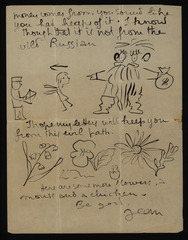 money comes from you sound like
you has heard of it. I know
though that it is not from the
wild Russian
I hope my letter will keep you
from this evil path.
Here are some more flowers, a
mouse and a chicken.
Be good
Jean